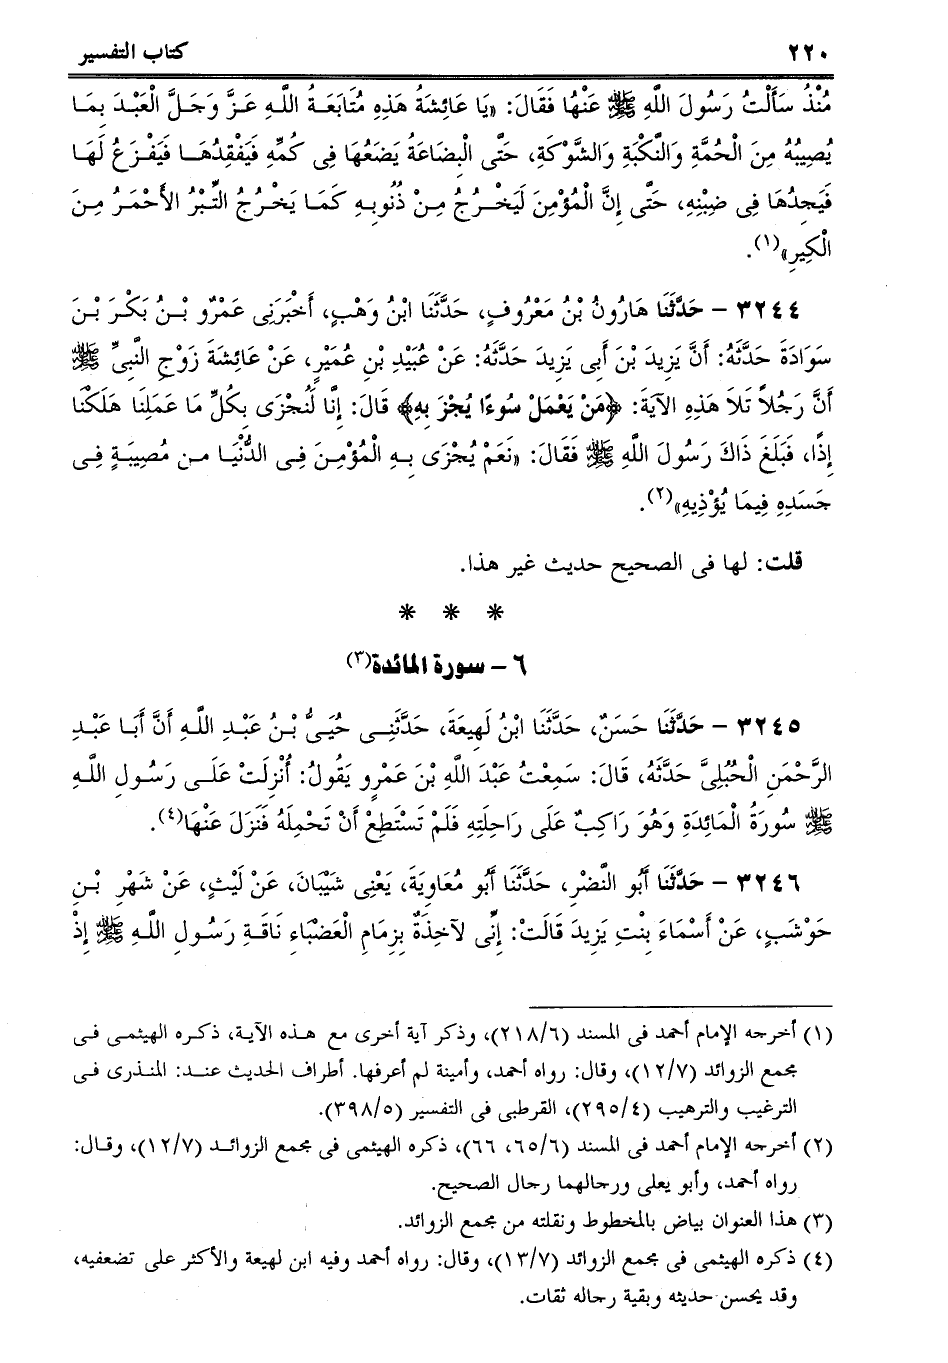 ٢٢٠ كتاب التفسير
مُنْذُ سَأَلْتُ رَسُولَ اللَّهِ ﷺ عَنْهُا فَقَالَ: «يَا عَائِشَةُ هَذِهِ مُتَابَعَةُ اللَّهِ عَزَّ وَجَلَّ الْعَبْدَ بِمَا
يُصِيبُهُ مِنَ الْحُمَّةِ وَالنَّكْبَةِ وَالشَّوْكَةِ، حَتَّى الْبِضَاعَةُ يَضَعُهَا فِى كُمِّهِ فَيَفْقِدُهَا فَيَفْزَعُ لَهَا
فَيَجِدُهَا فِى ضِبْنِهِ، حَتَّى إِنَّ الْمُؤْمِنَ لَيَخْرُجُ مِنْ ذُنُوبِهِ كَمَا يَخْرُجُ التِّبْرُ الأَحْمَرُ مِنَ
الْكِيرِ»(١).
٣٢٤٤ – حَدَّثَنَا هَارُونُ بْنُ مَعْرُوفٍ، حَدَّثَنَا ابْنُ وَهْبٍ، أَخْبَرَنِى عَمْرُو بْنُ بَكْرَ بْنَ
سَوَادَةَ حَدَّثَهُ: أَنَّ يَزِيدَ بْنَ أَبِى يَزِيدَ حَدَّثَهُ: عَنْ عُبَيْدِ بْنِ عُمَيْرٍ، عَنْ عَائِشَةَ زَوْجِ النَّبِىِّ ﷺ
أَنَّ رَجُلاً تَلاَ هَذِهِ الآيَةَ: ﴿مَنْ يَعْمَلْ سُوءًا يُجْزَ بِهِ﴾ قَالَ: إِنَّا لَنُجْزَى بِكُلِّ مَا عَمَلِنَا هَلَكْنَا
إِذًا، فَبَلَغَ ذَاكَ رَسُولَ اللَّهِ ﷺ فَقَالَ: «نَعَمْ يُجْزَى بِهِ الْمُؤْمِنَ فِى الدُّنْيَا من مُصِيبَةٍ فِى
جَسَدِهِ فِيمَا يُؤْذِيهِ»(٢).
قلت: لها فى الصحيح حديث غير هذا.
* * *
٦ – سورة المائدة(٣)
٣٢٤٥ – حَدَّثَنَا حَسَنٌ، حَدَّثَنَا ابْنُ لَهِيعَةَ، حَدَّثَنِى حُيَىُّ بْنُ عَبْدِ اللَّهِ أَنَّ أَبَا عَبْدِ
الرَّحْمَنِ الْحُبُلِىَّ حَدَّثَهُ، قَالَ: سَمِعْتُ عَبْدَ اللَّهِ بْنَ عَمْرٍو يَقُولُ: أُنْزِلَتْ عَلَى رَسُولِ اللَّهِ
ﷺ سُورَةُ الْمَائِدَةِ وَهُوَ رَاكِبٌ عَلَى رَاحِلَتِهِ فَلَمْ تَسْتَطِعْ أَنْ تَحْمِلَهُ فَنَزَلَ عَنْهَا(٤).
٣٢٤٦ – حَدَّثَنَا أَبُو النَّضْرِ، حَدَّثَنَا أَبُو مُعَاوِيَةَ، يَعْنِى شَيْبَانَ، عَنْ لَيْثٍ، عَنْ شَهْرِ بْنِ
حَوْشَبٍ، عَنْ أَسْمَاءَ بِنْتِ يَزِيدَ قَالَتْ: إِنِّى لآخِذَةٌ بِزِمَامِ الْعَضْبَاءِ نَاقَةِ رَسُولِ اللَّهِ ﷺ إِذْ
(١) أخرجه الإمام أحمد فى المسند (٢١٨/٦)، وذكر آية أخرى مع هذه الآية، ذكره الهيثمى فى
مجمع الزوائد (١٢/٧)، وقال: رواه أحمد، وأمينة لم أعرفها. أطراف الحديث عند: المنذرى فى
الترغيب والترهيب (٢٩٥/٤)، القرطبى فى التفسير (٣٩٨/٥).
(٢) أخرجه الإمام أحمد فى المسند (٦٥/٦، ٦٦)، ذكره الهيثمى فى مجمع الزوائد (١٢/٧)، وقال:
رواه أحمد، وأبو يعلى ورجالهما رجال الصحيح.
(٣) هذا العنوان بياض بالمخطوط ونقلته من مجمع الزوائد.
(٤) ذكره الهيثمى فى مجمع الزوائد (١٣/٧)، وقال: رواه أحمد وفيه ابن لهيعة والأكثر على تضعفيه،
وقد يحسن حديثه وبقية رجاله ثقات.